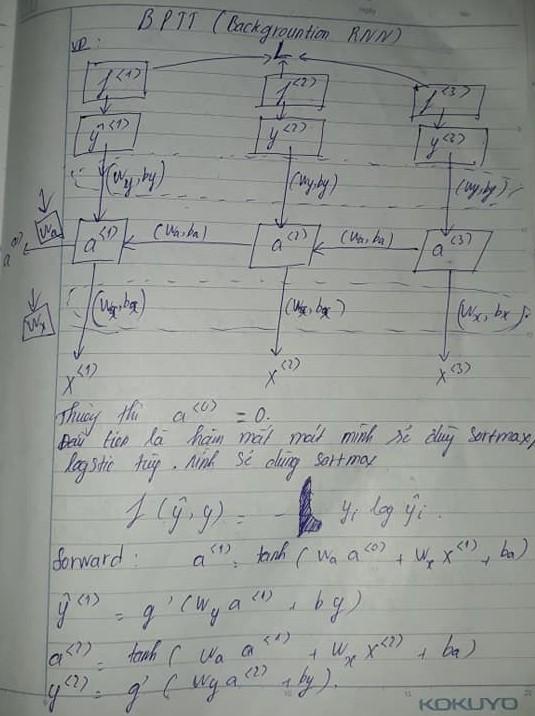 BPTT (Backgrountion RNN)
VD:
L
f<1> f<2> f<3>
ŷ<1> y<2> y<3>
(Wy, by) (Wy, by) (Wy, by)
Wa
a<0> a<1> (Wa, ba) a<2> (Wa, ba) a<3>
Wx
(Wx, bx) (Wx, bx) (Wx, bx)
X<1> X<2> X<3>
Thường thì a<0> = 0.
Đầu tiên là hàm mất mát mình sẽ dùng sortmax,
logstic tùy. mình sẽ dùng sortmax
f (ŷ, y) = - yi log ŷi.
forward: a<1> = tanh ( Wa a<0> + Wx X<1> + ba)
ŷ<1> = g' (Wy a<1> + by)
a<2> = tanh ( Wa a<1> + Wx X<2> + ba)
y<2> = g' ( Wy a<2> + by).
KOKUYO